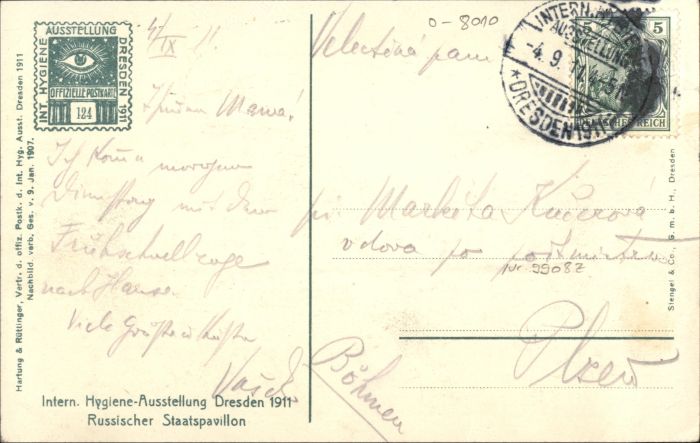 AUSSTELLUNG
INT. HYGIENE
DRESDEN 1911
OFFIZIELLE POSTKARTE
124
Hartung & Rüttinger, Vertr. d. offiz. Postk. d. Int. Hyg. Ausst. Dresden 1911
Nachbild. verb. Ges. v. 9. Jan. 1907.
4/IX 11.
Mama!
Ich komme morgen
Dienstag mit dem
Frühschnellzuge
nach Hause.
Viele Grüsse u Küsse
Intern. Hygiene-Ausstellung Dresden 1911
Russischer Staatspavillon
0-8010
INTERN.
AUSSTELLUNG
-4.9.11.
*DRESDEN 1911
5
DEUTSCHES REICH
Velectěná paní
pí Marketa Kučerová
vdova po
nr 99087
Plzeň
Böhmen
Stengel & Co., G. m. b. H., Dresden